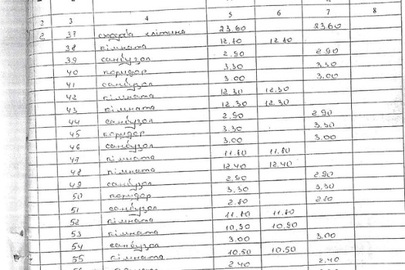 1 2 3 4 5 6 7 8
2 37 сходова клітина 23.60 23.60
38 кімната 12.70 12.70
39 санвузол 2.90 2.90
40 коридор 3.30 3.30
41 санвузол 3.00 3.00
42 кімната 12.30 12.30
43 кімната 12.30 12.30
44 санвузол 2.90 2.90
45 коридор 3.30 3.30
46 санвузол 3.00 3.00
47 кімната 11.80 11.80
48 кімната 12.40 12.40
49 санвузол 2.80 2.80
50 коридор 3.30 3.30
51 санвузол 2.80 2.80
52 кімната 11.80 11.80
53 кімната 10.50 10.50
54 санвузол 3.00 3.00
55 кімната 10.50 10.50
2.40 2.40